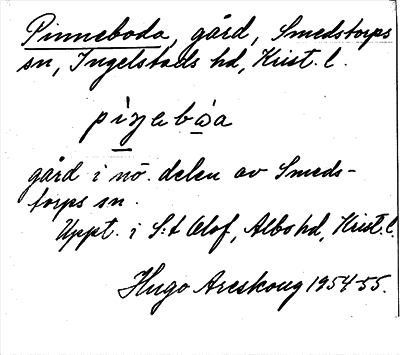 Pinneboda, gård, Smedstorps
sn, Ingelstads hd, Krist. l.
gård i nö. delen av Smeds-
torps sn.
Uppt. i S:t Olof, Albo hd, Krist. l.
Hugo Areskoug 1954-55.